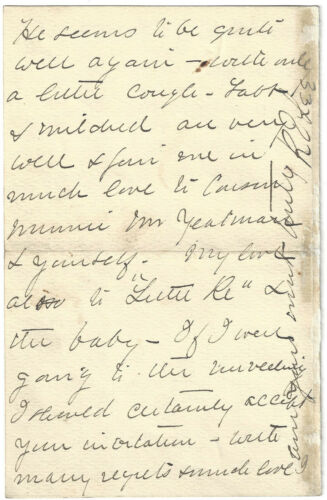 He seems to be quite
well again - with only
a little cough -
& Mildred are very
well & join me in
much love to Cousin
Minnie Mr Yeatman
& yourself. My love
also to "Little Re" &
the baby - If I were
going to the
I should certainly accept
your invitation - with
many regrets & much love I
am yours most